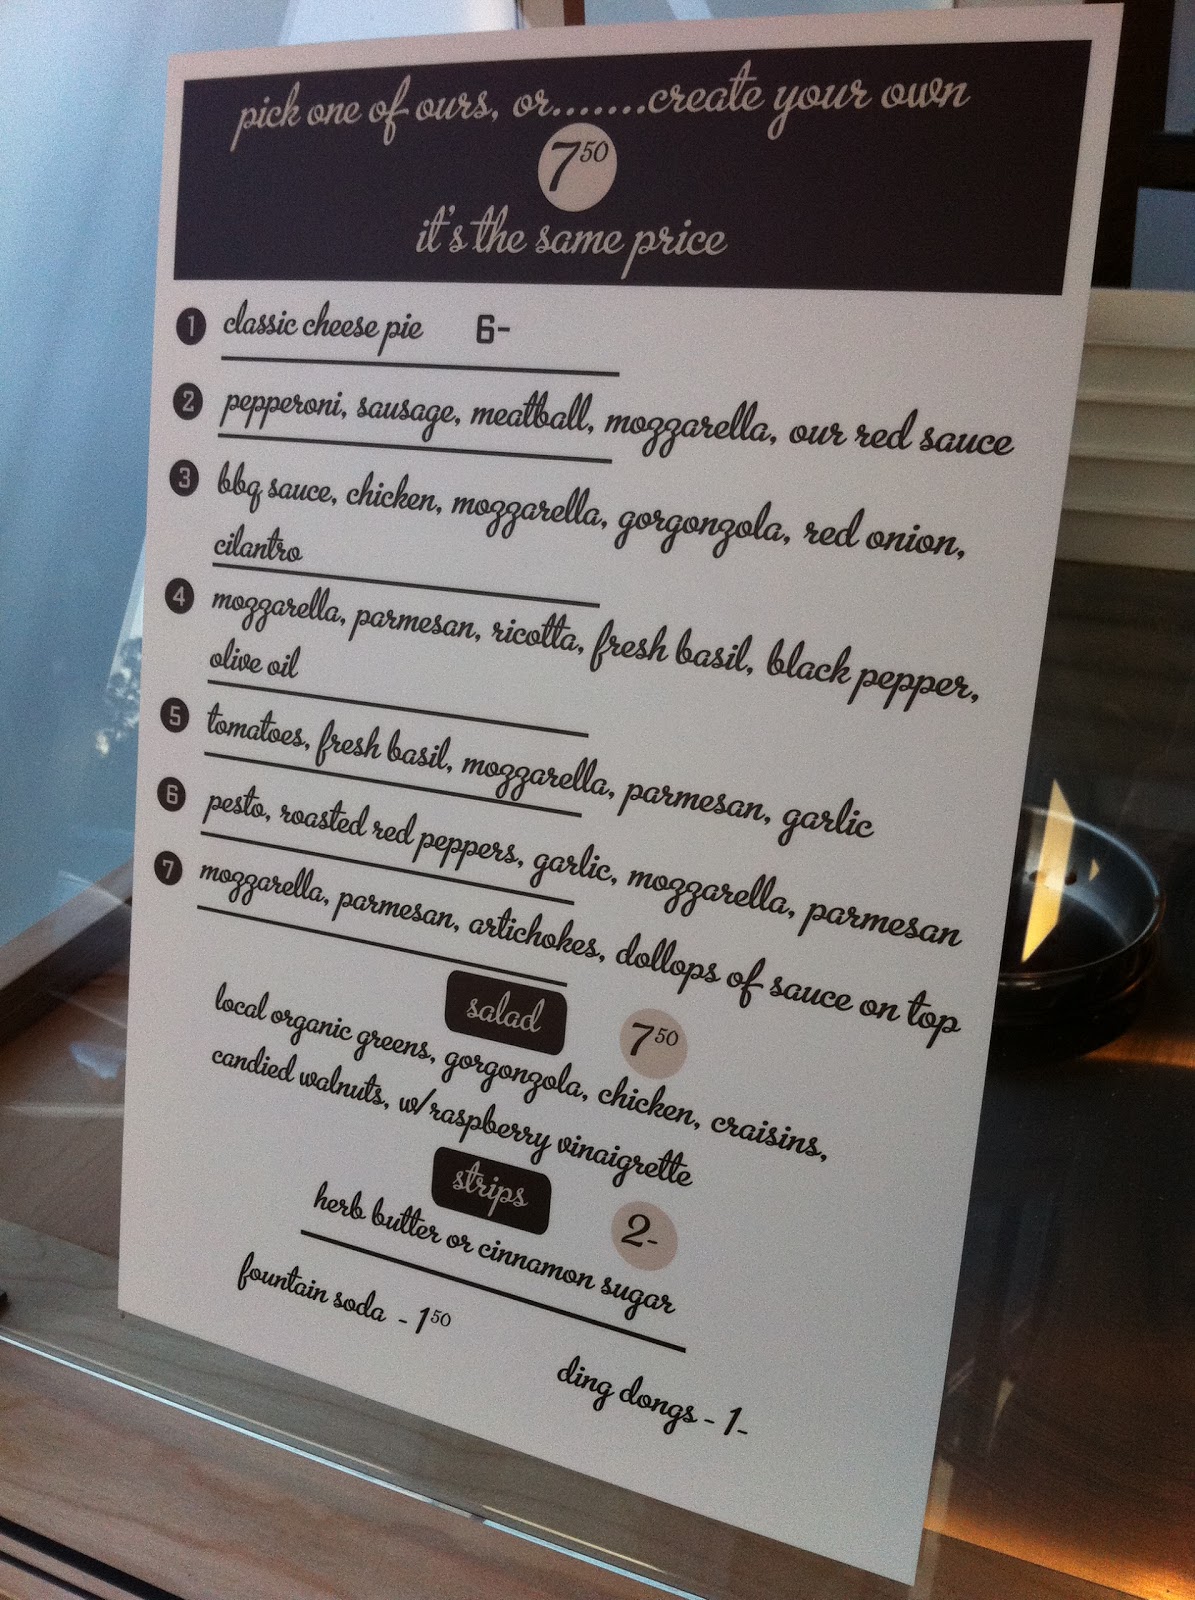 pick one of ours, or.......create your own
7 50
it's the same price
1 classic cheese pie 6-
2 pepperoni, sausage, meatball, mozzarella, our red sauce
3 bbq sauce, chicken, mozzarella, gorgonzola, red onion,
cilantro
4 mozzarella, parmesan, ricotta, fresh basil, black pepper,
olive oil
5 tomatoes, fresh basil, mozzarella, parmesan, garlic
6 pesto, roasted red peppers, garlic, mozzarella, parmesan
7 mozzarella, parmesan, artichokes, dollops of sauce on top
salad 7 50
local organic greens, gorgonzola, chicken, craisins,
candied walnuts, w/raspberry vinaigrette
strips 2-
herb butter or cinnamon sugar
fountain soda - 1 50
ding dongs - 1-